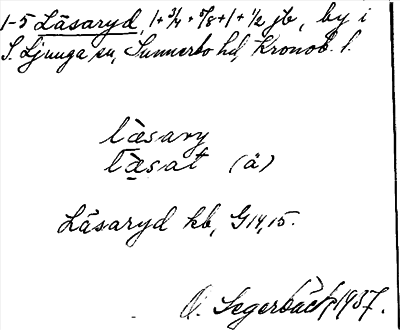 1-5 Läsaryd, 1+3/4+5/8+1+1/2 jb, by i
S. Ljunga sn, Sunnerbo hd, Kronob. l.
làsary
làsat (ä)
Läsaryd kb, G14,15.
O. Segerbäck, 1937.